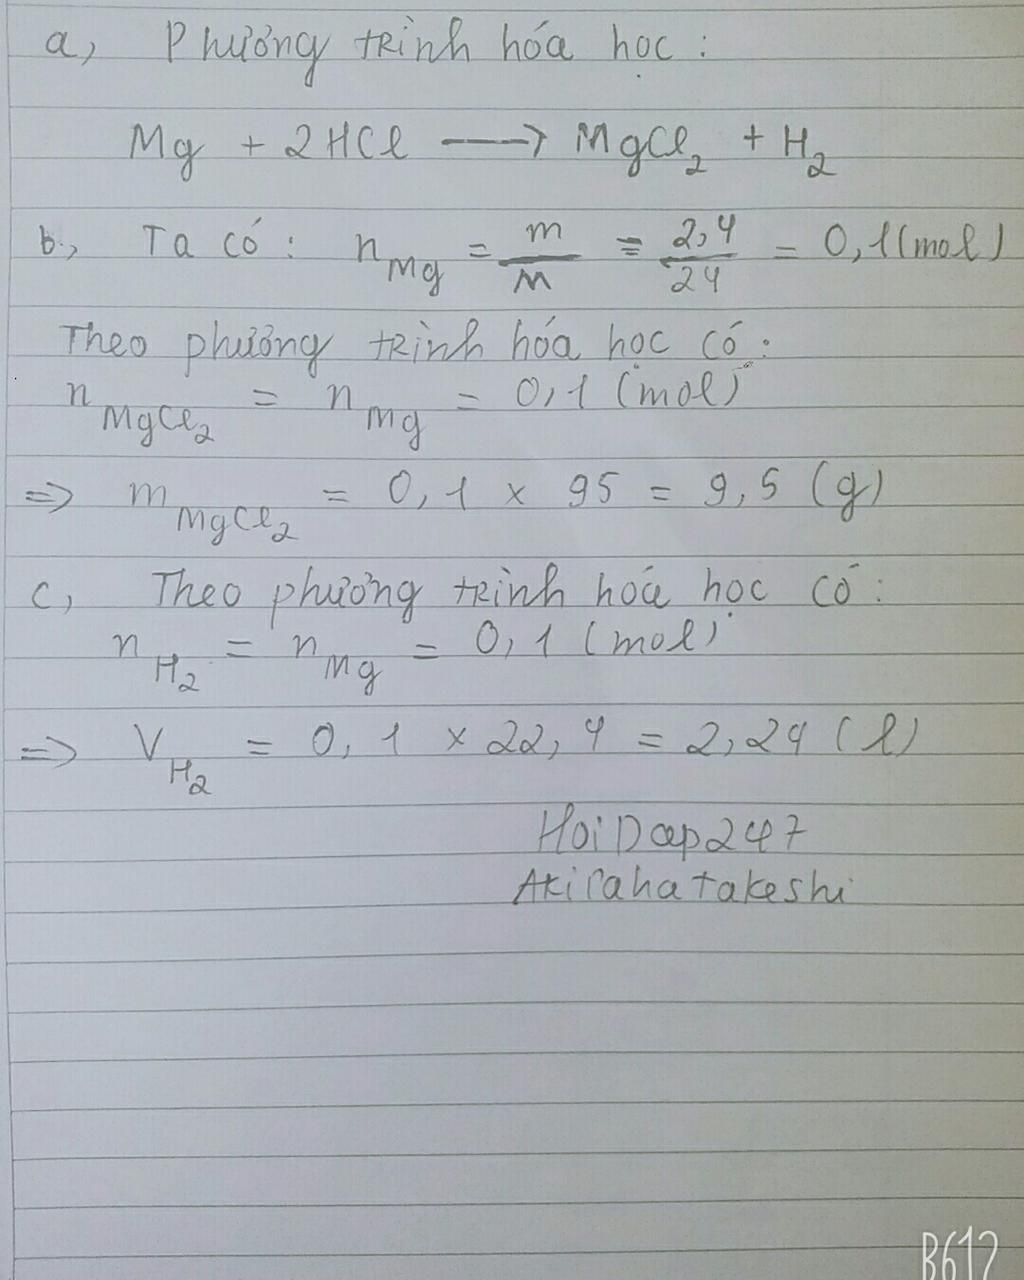 a, Phương trình hóa học :
Mg + 2HCl ⟶ MgCl₂ + H₂
b, Ta có : n_Mg = m/M = 2,4/24 = 0,1 (mol)
Theo phương trình hóa học có :
n_MgCl₂ = n_Mg = 0,1 (mol)
=> m_MgCl₂ = 0,1 × 95 = 9,5 (g)
c, Theo phương trình hóa học có :
n_H₂ = n_Mg = 0,1 (mol)
=> V_H₂ = 0,1 × 22,4 = 2,24 (l)
HoiDap247
Akirahatakeshi
B612